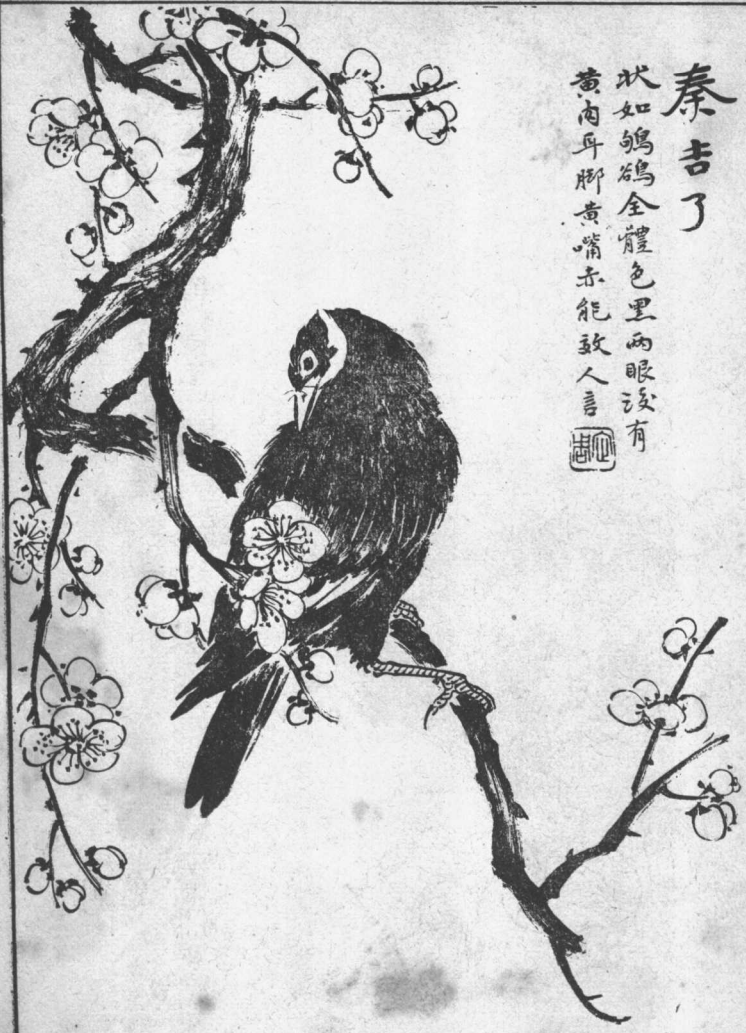 秦吉了
狀如鴝鵒全體色黑兩眼後有
黄肉耳脚黄嘴赤能效人言